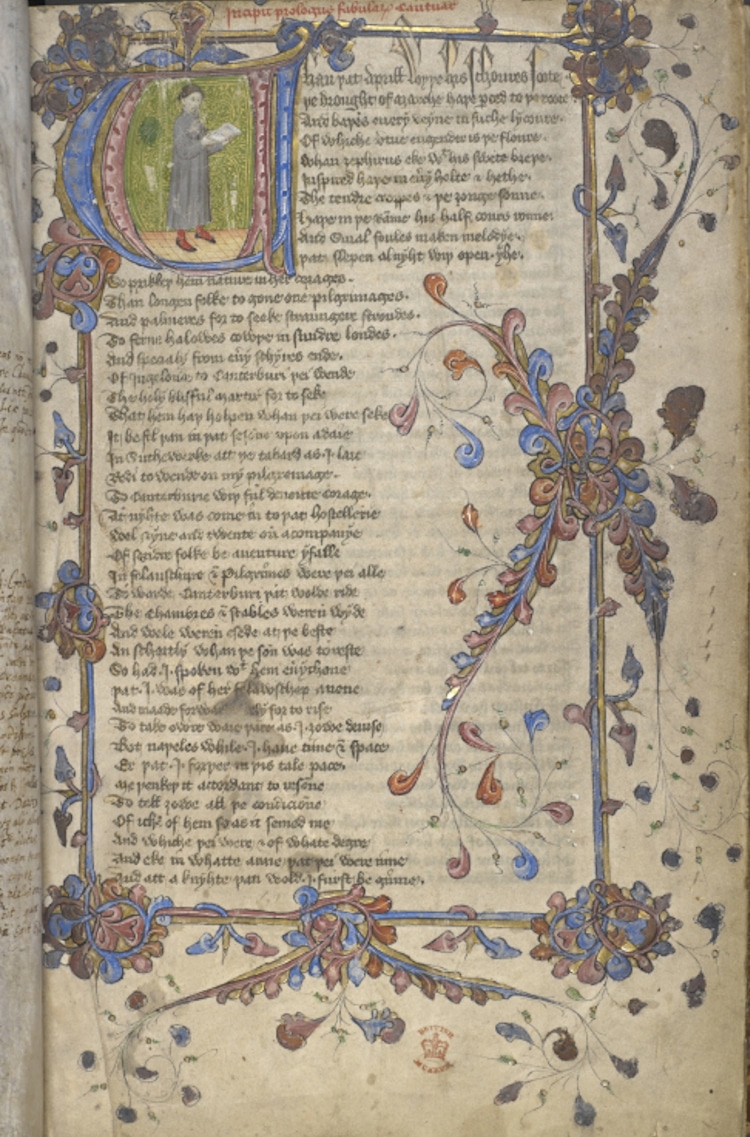 Incipit prologus fabularum Cantuar
Whan þat Aprill wyþ his schoures soote
þe drought of Marche haþ perced to þe roote
And baþed euery veyne in suche lycoure
Of whiche vertue engendered is þe floure
Whan zephirus eke wt his swete breþe
Inspired haþ in euery holte & hethe
The tendre croppes & þe ȝonge sonne
Haþ in þe Ramme his half cours ronne
And smal foules maken melodye
þat slepen al nyht wiþ open yhe
So prikkeþ hem nature in her corages
Than longen folke to gone on pilgrimages
And palmeres for to seeke straunger strondes
To ferne halowes cowþe in sundre londes
And specialy from euery schyres ende
Of Ingelond to Canterburi þei wende
The holy blisful martir for to seke
That hem haþ holpen whan þei were seke
It befel þan in þat sesone vpon a daie
In Suthewerke att þe tabard as I laie
Redi to wende on my pilgremage
To Canterburie wiþ ful deuoute corage
At nyhte was come in to þat hostellerie
Wel nyne and twente on a companye
Of sondre folke be auenture yfalle
In felauschipe & Pilgrimes were þei alle
To warde Canterburi þat wolde ride
The chambres & stables weren wyde
And wele weren esede at þe beste
An schortly whan þe son was to reste
So had I spoken wt hem euerychone
þat I was of her felawschep anone
And made forwarde for to rise
To take owre waie þere as I ȝowe deuise
But naþeles while I haue time & space
Er þat I forþer in þis tale pace
Me þenkeþ it accordant to resone
To tell ȝowe all þe condicione
Of iche of hem so as it semed me
And whiche þei were & of whate degre
And eke in whatte araie þat þei were inne
And att a knyhte þan wold I furst be ginne
BRITISH
MUSEUM